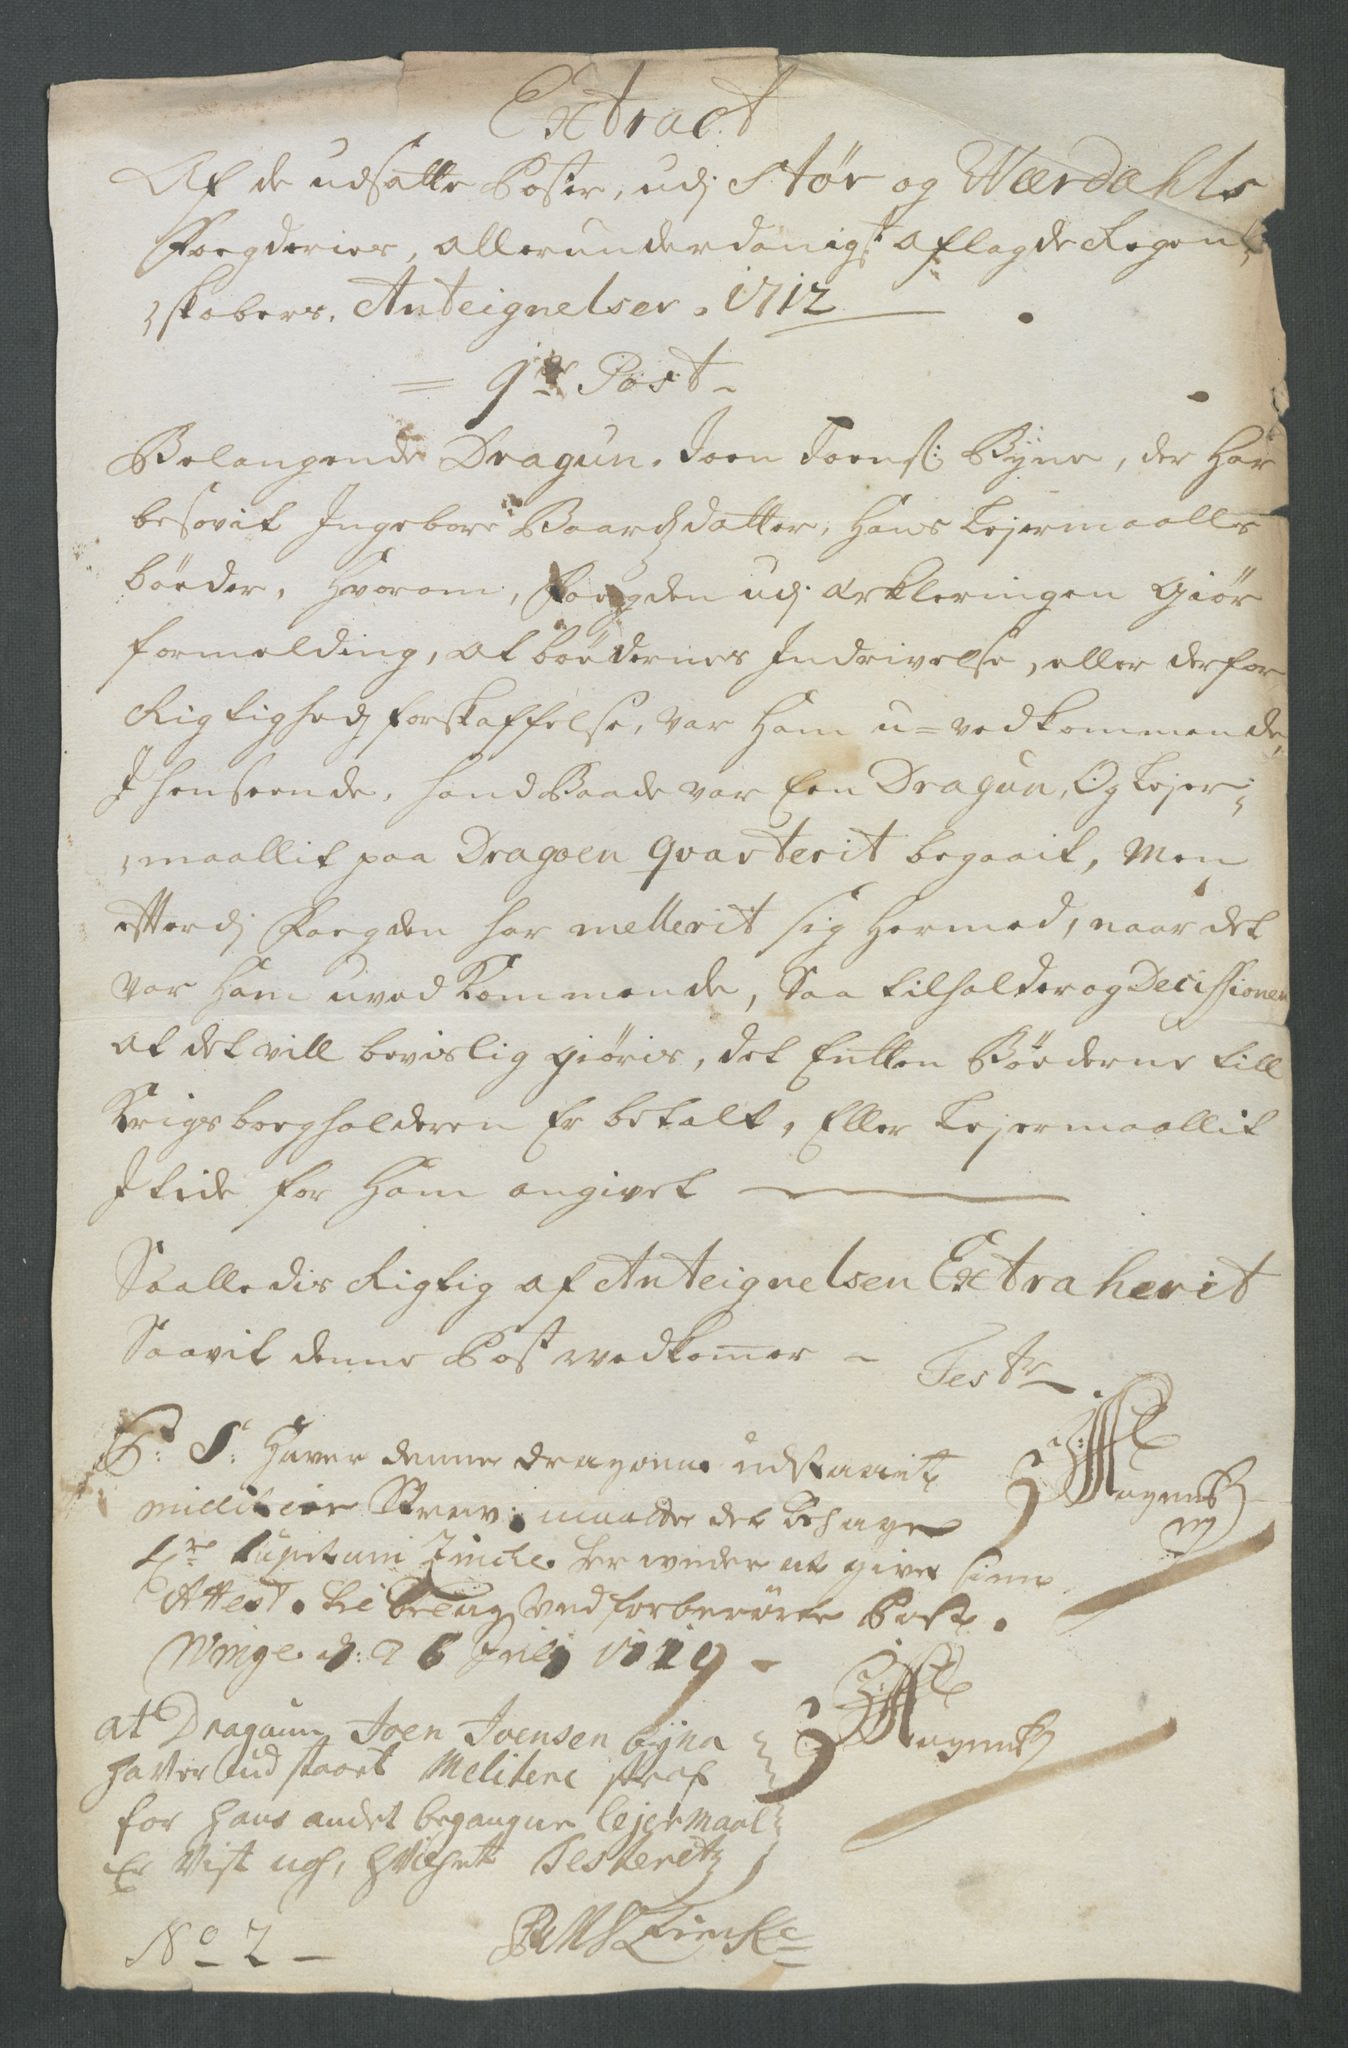 Extract
Af de udsatte Poster, udj Stør og Wærdahls
Foegderies, allerunderdanigst aflagde Regen-
skabers, Anteignelser, 1712
9de Post
Belangende Dragun, Joen Joens: Byne, der har
besovit Ingebore Baardsdatter, Hans Lejermaalls
böeder, hvorom, Foegden udj erkleringen giör
formelding, at böedernes Indrivelse, eller derfor
Rigtigheds forskaffelse, var Ham u-vedkommende,
I henseende, hand Baade var Een Dragun, Og Lejer-
maallit paa Dragoen qvarterit begaait, Men
efterdj Foegden har mellerit sig Hermed, naar det
var Ham uvedkommende, Saa tilholder og Decissionen
at det vill bevislig giöris, det Entten Böederne till
Krigsbogholderen Er betalt, Eller Lejermaallit
I tide for Ham angivet
Saalledis Rigtig af Anteignelsen Extraherit
Saavit denne Post vedkomer - Test
P: S: Haver denne dragoun udstaait
millitær Straw, maatte det behage
Hr Capitain Zincke her under at give sin
Attest, til beviis ved forberörte Post.
Winge d: 26 Julj 1719 -
at Dragoun Joen Joensen byna
haver udstaaet Melitere straf
for hans andet begangne lejermaal
Er Vist nok, hvilchet Testerer
No 2 - Zincke